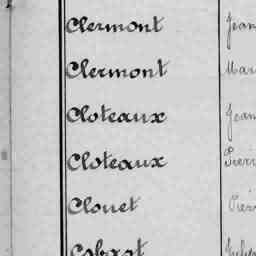 Clermont Jean
Clermont Mari
Cloteaux Jean
Cloteaux Pierr
Clouet Pierr
Cobrat Jules